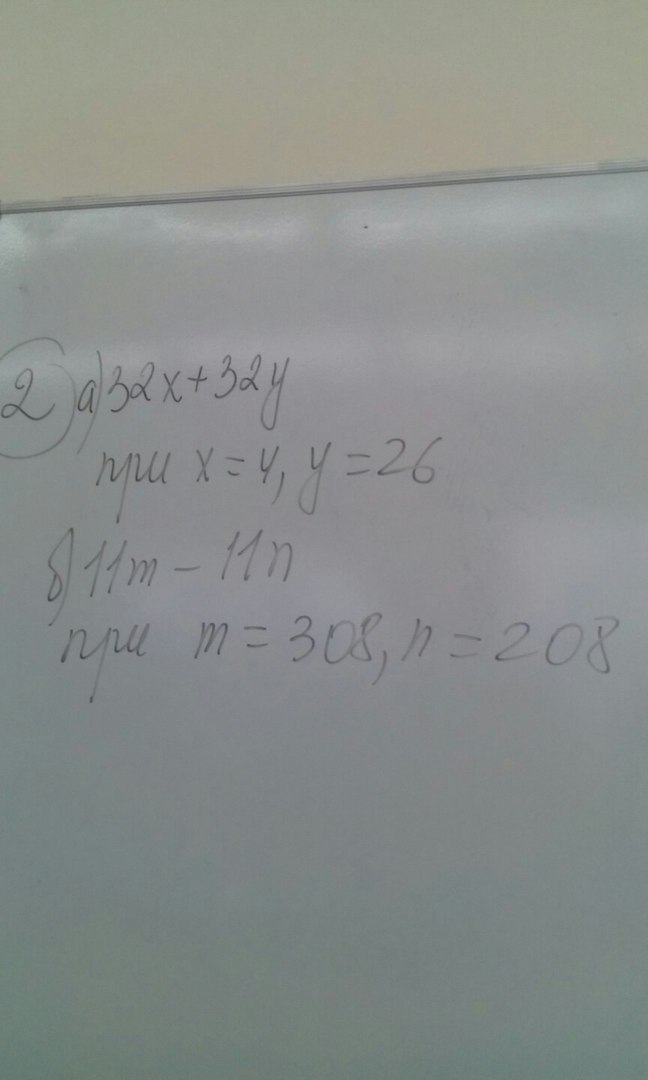 2 а) 32x+32y
при x=4, y=26
б) 11m - 11n
при m=308, n=208